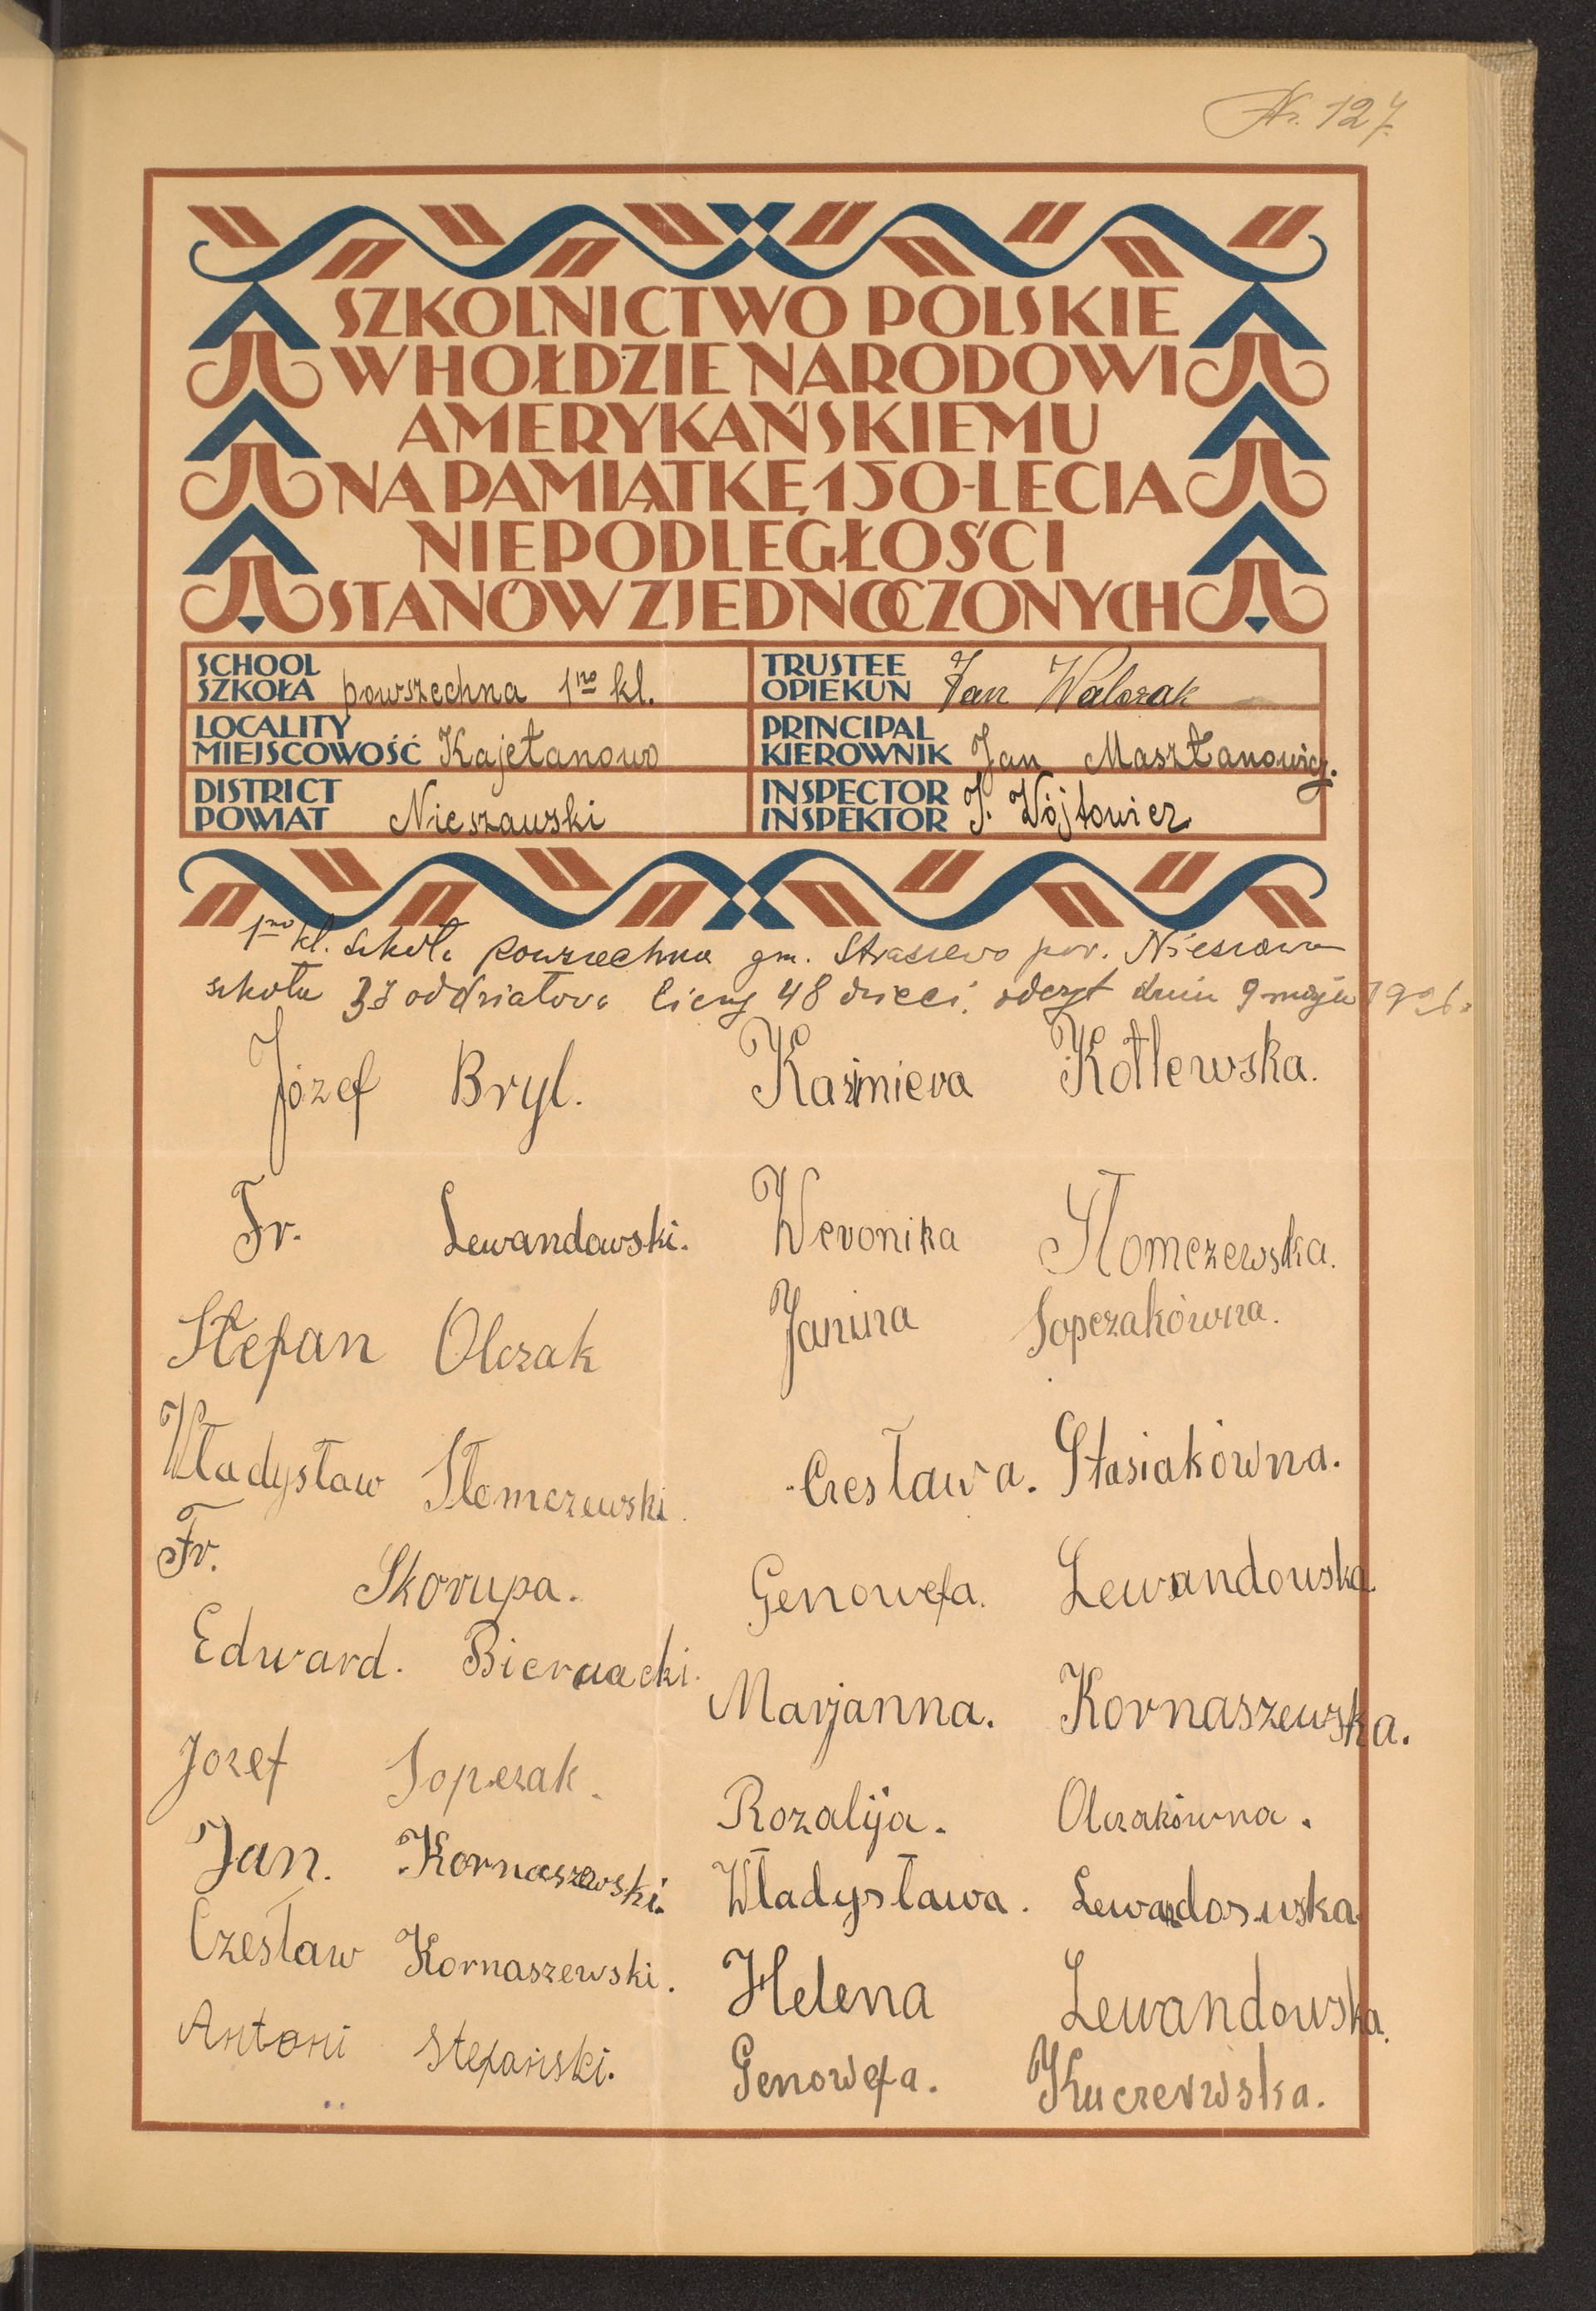 Nr. 127.
SZKOLNICTWO POLSKIE
W HOŁDZIE NARODOWI
AMERYKAŃSKIEMU
NA PAMIĄTKĘ 150-LECIA
NIEPODLEGŁOŚCI
STANÓW ZJEDNOCZONYCH
SCHOOL
SZKOŁA powszechna 1no kl.
TRUSTEE
OPIEKUN Jan Walczak
LOCALITY
MIEJSCOWOŚĆ Kajetanowo
PRINCIPAL
KIEROWNIK Jan Masztanowicz.
DISTRICT
POWIAT Nieszawski
INSPECTOR
INSPEKTOR J. Wójtowicz
1no kl. szkoła powszechna gm. Straszewo pow. Nieszawa
szkoła oddziałowa liczy 48 dzieci. odczyt dnia 9 maja 1926.
Józef Bryl. Kaźmiera Kotlewska.
Fr. Lewandowski. Weronika Słomczewska.
Stefan Olczak Janina Sopczakówna.
Władysław Słomczewski. Czesława. Stasiakówna.
Fr. Skorupa. Genowefa. Lewandowska.
Edward. Biernacki. Marjanna. Kornaszewska.
Jozef Sopczak. Rozalija. Olczakówna.
Jan. Kornaszewski. Władysława. Lewandoswska.
Czesław Kornaszewski. Helena Lewandowska.
Antoni Stefański. Genowefa. Kuczerwska.